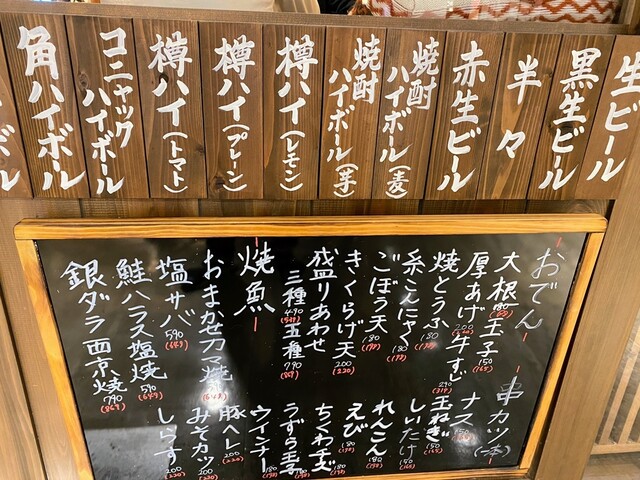 生ビール
黒生ビール
半々
赤生ビール
焼酎ハイボール(麦)
焼酎ハイボール(芋)
樽ハイ(レモン)
樽ハイ(プレーン)
樽ハイ(トマト)
コニャックハイボール
角ハイボール
おでん
大根 180 玉子 150 (165)
厚あげ 200 (220) 牛すじ 290 (319)
焼とうふ 180 (198)
糸こんにゃく 180 (198)
ごぼう天 180 (198)
きくらげ天 200 (220)
盛りあわせ
三種 490 (539) 五種 790 (869)
焼魚
おまかせカマ焼 (649)
塩サバ 590 (649)
鮭ハラス塩焼 590 (649)
銀ダラ西京焼 790 (869)
串カツ(一本)
ナス 150
玉ねぎ 150 (165)
しいたけ 150 (165)
れんこん 180 (198)
えび 180 (198)
ちくわチーズ 180 (198)
うずら玉子 180 (198)
ウインナー 180 (198)
豚ヘレ 200 (220)
みそカツ 200 (220)
しらす 200 (220)